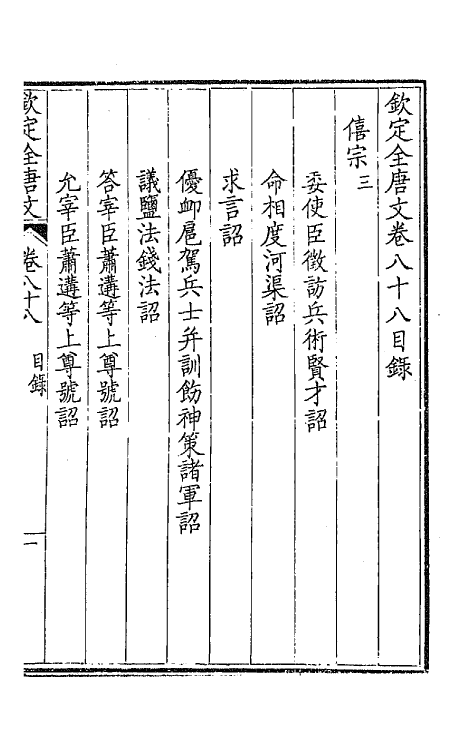 欽定全唐文卷八十八目錄
僖宗三
委使臣徵訪兵術賢才詔
命相度河渠詔
求言詔
優䘏扈駕兵士并訓飭神策諸軍詔
議鹽法錢法詔
答宰臣蕭遘等上尊號詔
允宰臣蕭遘等上尊號詔
欽定全唐文 卷八十八 目錄 一